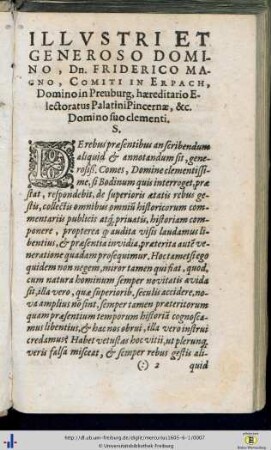 ILLVSTRI ET
GENEROSO DOMI
NO, Dn. FRIDERICO MA-
GNO, COMITI IN ERPACH,
Domino in Preuburg, hæreditario E-
lectoratus Palatini Pincernæ, &c.
Domino suo clementi.
S.
DE rebus præsentibus an scribendum
aliquid & annotandum sit, gene-
rosiss. Comes, Domine clementissi-
me, si Bodinum quis interroget, præ
stat, respondebit, de superioris ætatis rebus ge-
stis, collectis omnibus omniũ historicorum com-
mentariis publicis atq; priuatis, historiam com
ponere, propterea q; audita visis laudamus li-
bentius, & præsentia inuidia, præterita autẽ ve-
neratione quadam prosequimur. Hoc tametsi ego
quidem non negem, miror tamen qui fiat, quod,
cum natura hominum semper nouitatis auida
sit, illa vero, quæ superiorib. seculis accidere, no-
ua amplius nõ sint, semper tamen præteritorum
quam præsentium temporum historiã cognosca-
mus libentius, & hac nos obrui, illa vero instrui
credamus? Habet vetustas hoc vitii, ut plerunq;
veris falsa misceat, & semper rebus gestis ali-
(:) 2 quid
http://dl.ub.uni-freiburg.de/diglit/mercurius1605-6-1/0007
© Universitätsbibliothek Freiburg